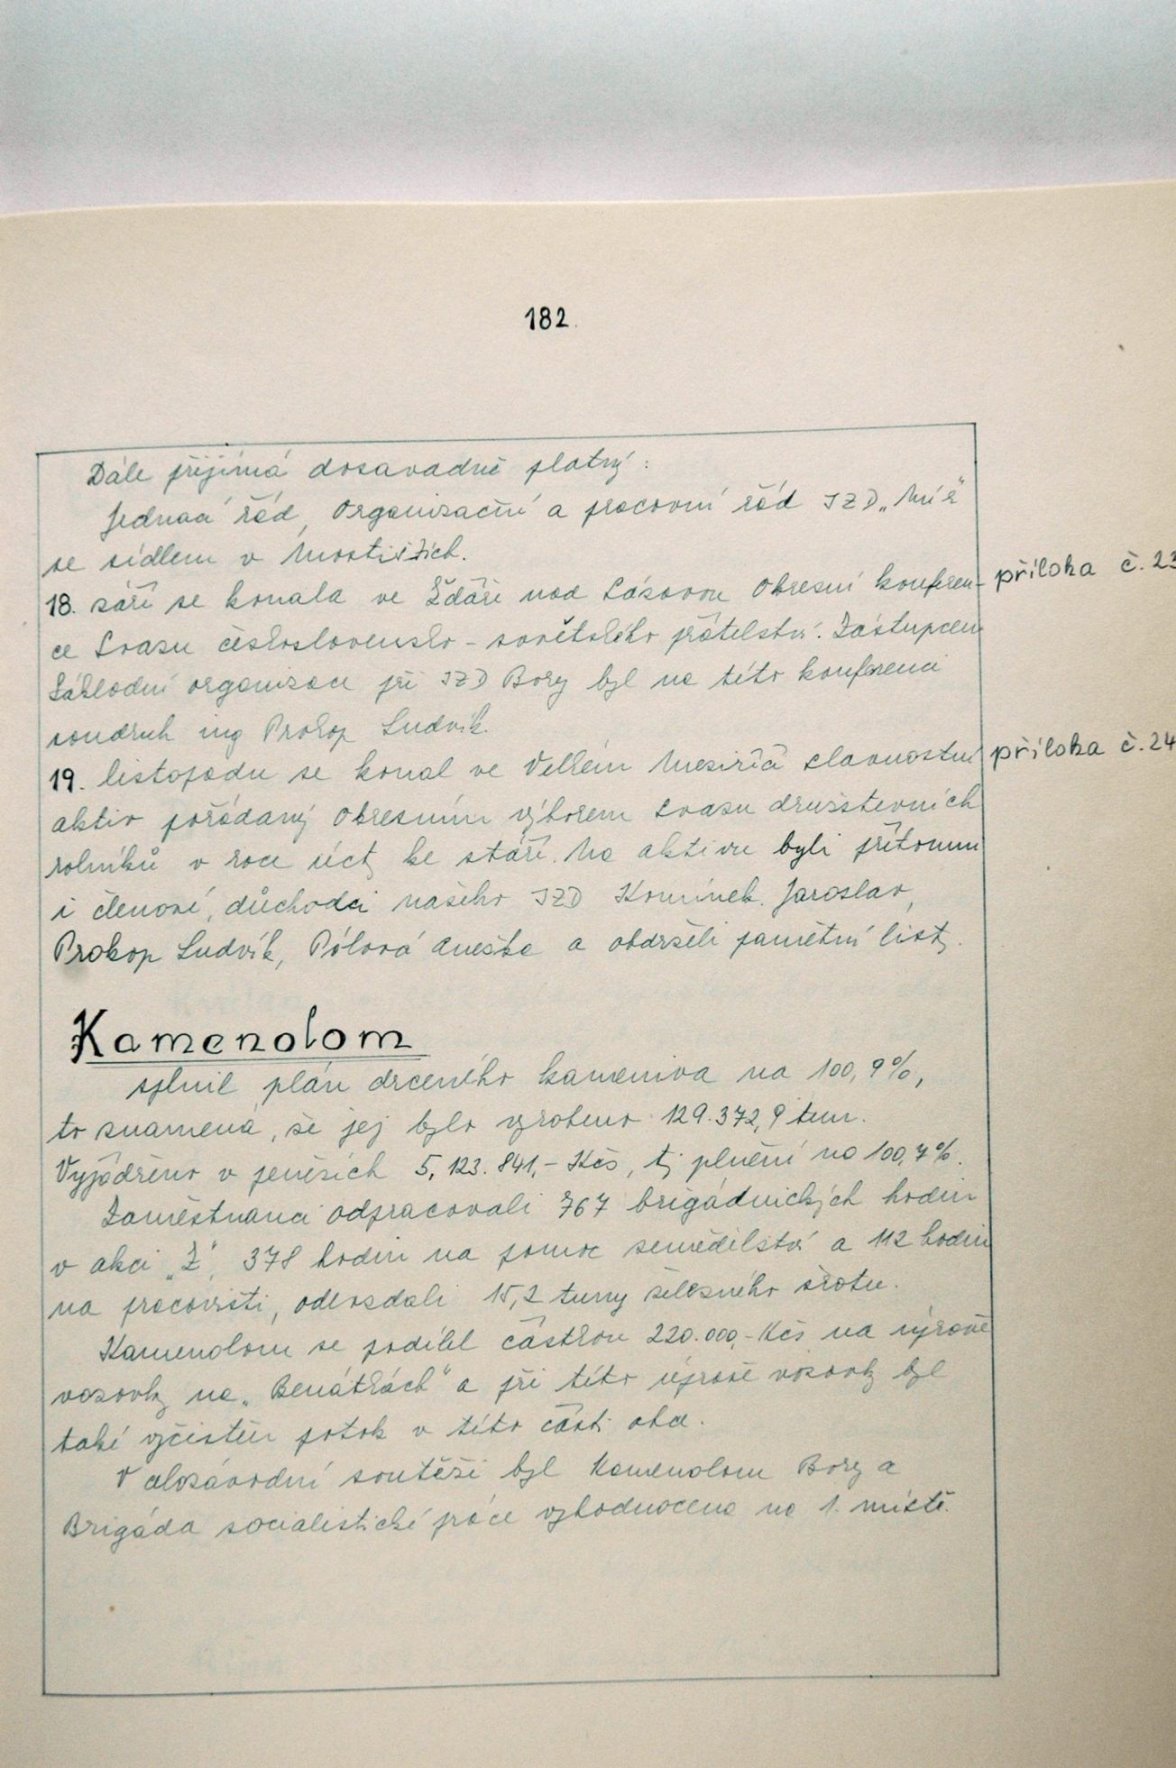 182.
Dále přijímá dosavadně platný:
Jednací řád, Organizační a pracovní řád JZD „Mír“
se sídlem v Mostištích.
18. září se konala ve Žďáře nad Sázavou Okresní konferen-
příloha č. 23
ce Svazu československo-sovětského přátelství. Zástupcem
Základní organizace při JZD Bory byl na této konferenci
soudruh ing Prokop Ludvík.
19. listopadu se konal ve Velkém Meziříčí slavnostní
příloha č. 24
aktiv pořádaný Okresním výborem svazu družstevních
rolníků v roce úcty ke stáří. Na aktivu byli přítomni
i členové, důchodci našeho JZD Komínek Jaroslav,
Prokop Ludvík, Pólová Anežka a obdrželi pamětní listy.
Kamenolom
splnil plán drceného kameniva na 100,9%,
to znamená, že jej bylo vyrobeno 129.372,9 tun.
Vyjádřeno v penězích 5,123.841,- Kčs, tj plnění na 100,7%.
Zaměstnanci odpracovali 767 brigádnických hodin
v akci „Z“, 378 hodin na pomoc zemědělství a 112 hodin
na pracovišti, odevzdali 15,2 tuny železného šrotu.
Kamenolom se podílel částkou 220.000,- Kčs na úpravě
vozovky na „Benátkách“ a při této úpravě vozovky byl
také vyčištěn potok v této části obce.
V celozávodní soutěži byl Kamenolom Bory a
Brigáda socialistické práce vyhodnocena na 1. místě.